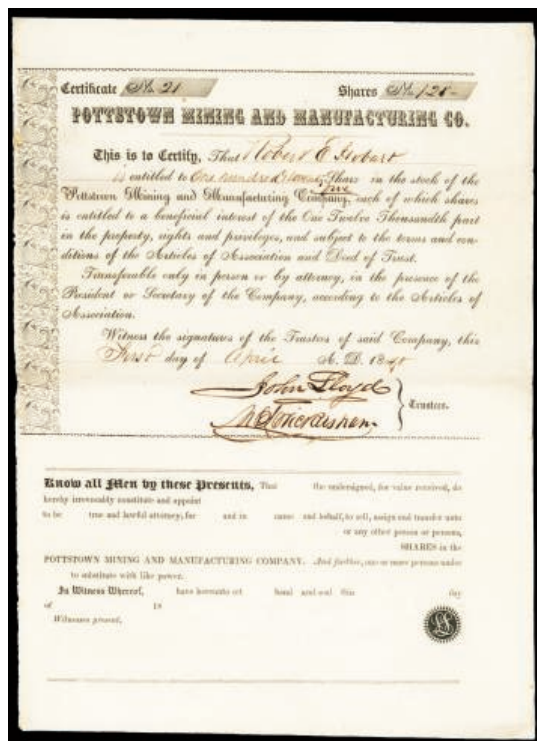 Certificate No. 21 Shares No. 125-
POTTSTOWN MINING AND MANUFACTURING CO.
This is to Certify, That Robert E Hobart
is entitled to One hundred & twenty five Share in the stock of the
Pottstown Mining and Manufacturing Company, each of which shares
is entitled to a beneficial interest of the One Twelve Thousandth part
in the property, rights and privileges, and subject to the terms and con-
ditions of the Articles of Association and Died of Trust.
Transferable only in person or by attorney, in the presence of the
President or Secretary of the Company, according to the Articles of
Association.
Witness the signatures of the Trustees of said Company, this
First day of April A. D. 18
John Lloyd
Trustees.
Know all Men by these Presents, That the undersigned, for value received, do
hereby irrevocably constitute and appoint
to be true and lawful attorney, for and in name and behalf, to sell, assign and transfer unto
or any other person or persons,
SHARES in the
POTTSTOWN MINING AND MANUFACTURING COMPANY. And further, one or more persons under
to substitute with like power.
In Witness Whereof, have hereunto set hand and seal this day
of 18
Witnesses present,
LS